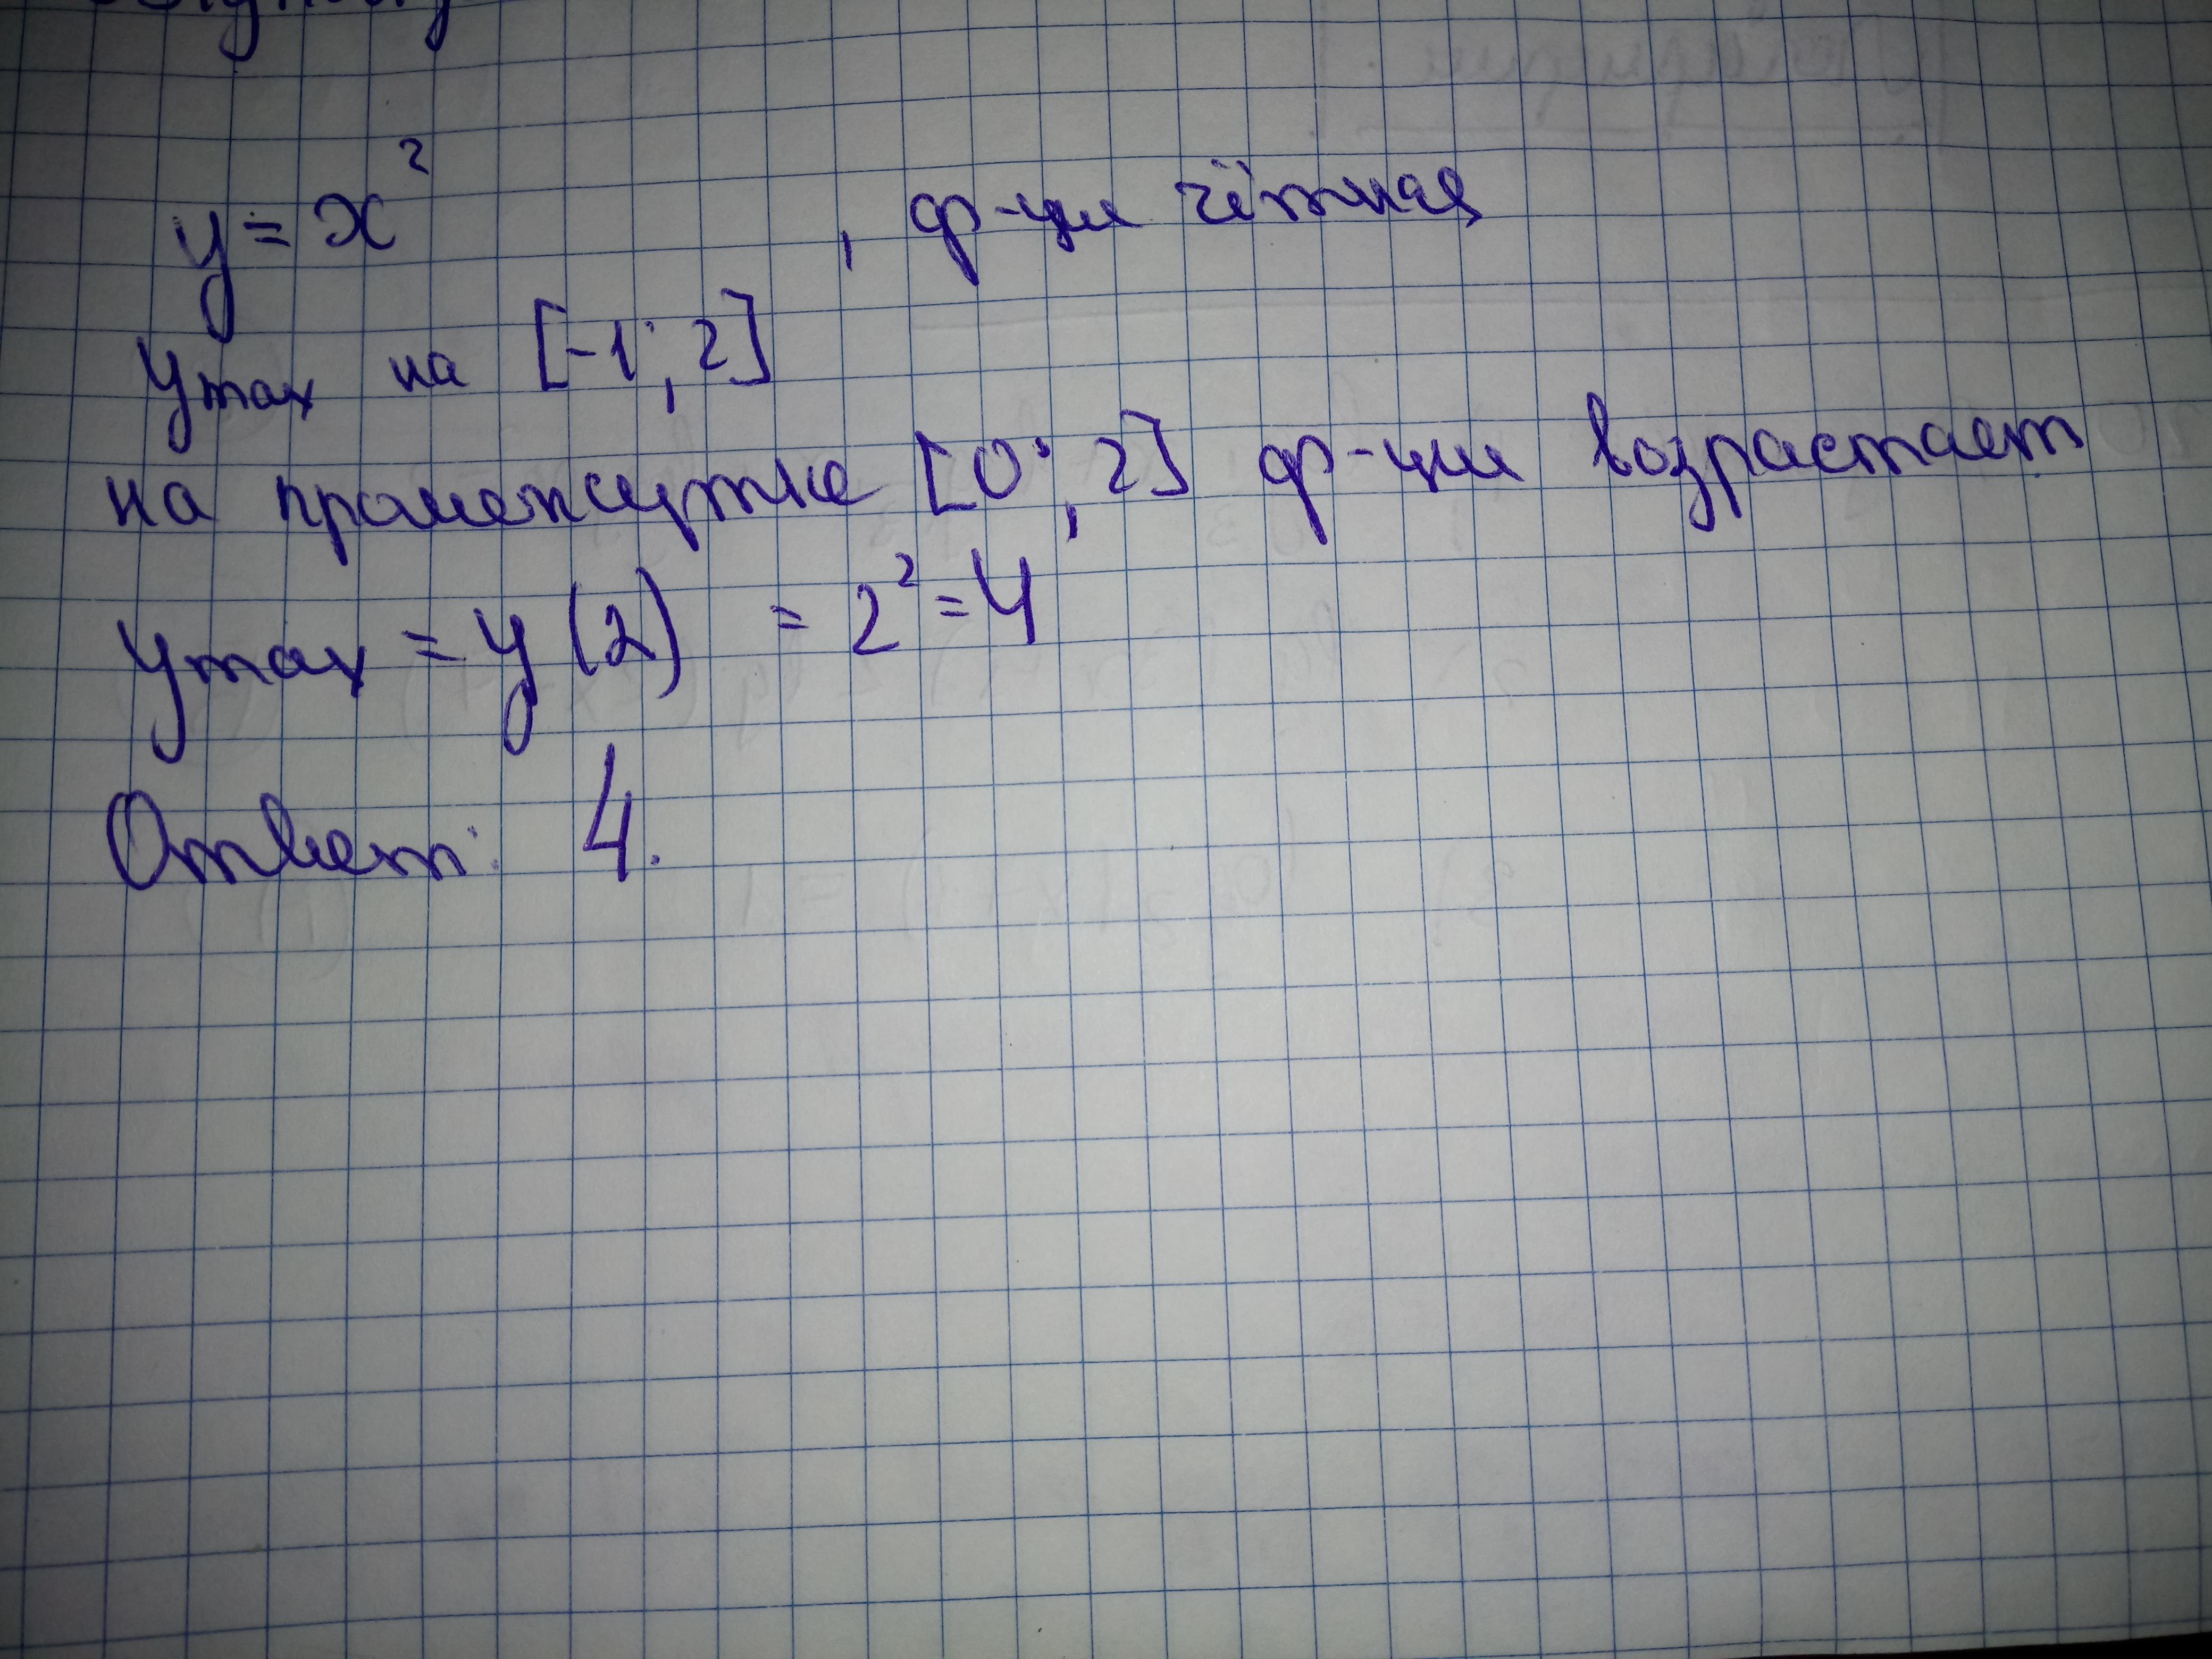 y = x² , ф-ция чётная
ymax на [-1; 2]
на промежутке [0; 2] ф-ция возрастает
ymax = y(2) = 2² = 4
Ответ: 4.